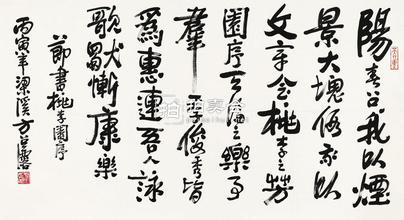 陽春召我以煙
景大塊假我以
文章会桃李之芳
園序天倫之樂事
羣季俊秀皆
為惠連吾人詠
歌獨慚康樂
節書桃李園序
丙寅年梁溪方召麐